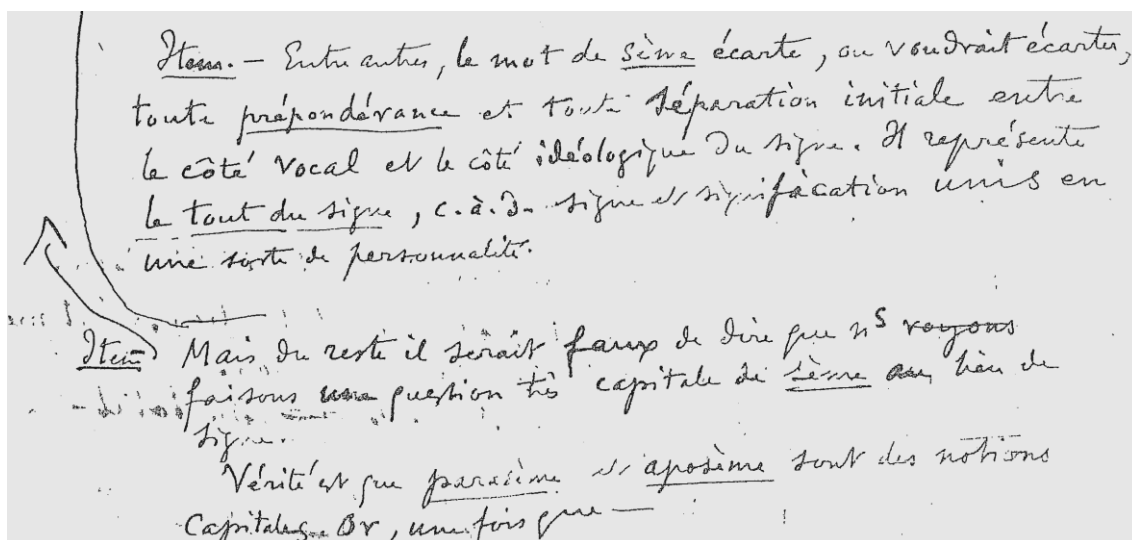 Item. — Entre autres, le mot de sème écarte, ou voudrait écarter,
toute prépondérance et toute séparation initiale entre
le côté vocal et le côté idéologique du signe. Il représente
le tout du signe, c.à.d. signe et signification unis en
une sorte de personnalité.
Item Mais du reste il serait faux de dire que ns voyons
faisons une question très capitale de sème au lieu de
signe.
Vérité est que parasème et aposème sont des notions
capitales. Or, une fois que —